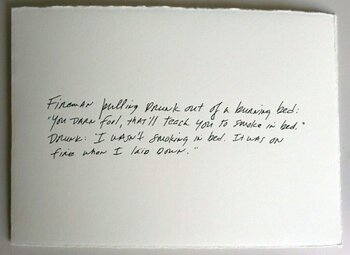 Fireman pulling Drunk out of a burning bed:
"You Darn Fool, that'll teach you to smoke in bed."
Drunk: "I wasn't smoking in bed. It was on
fire when I laid Down."